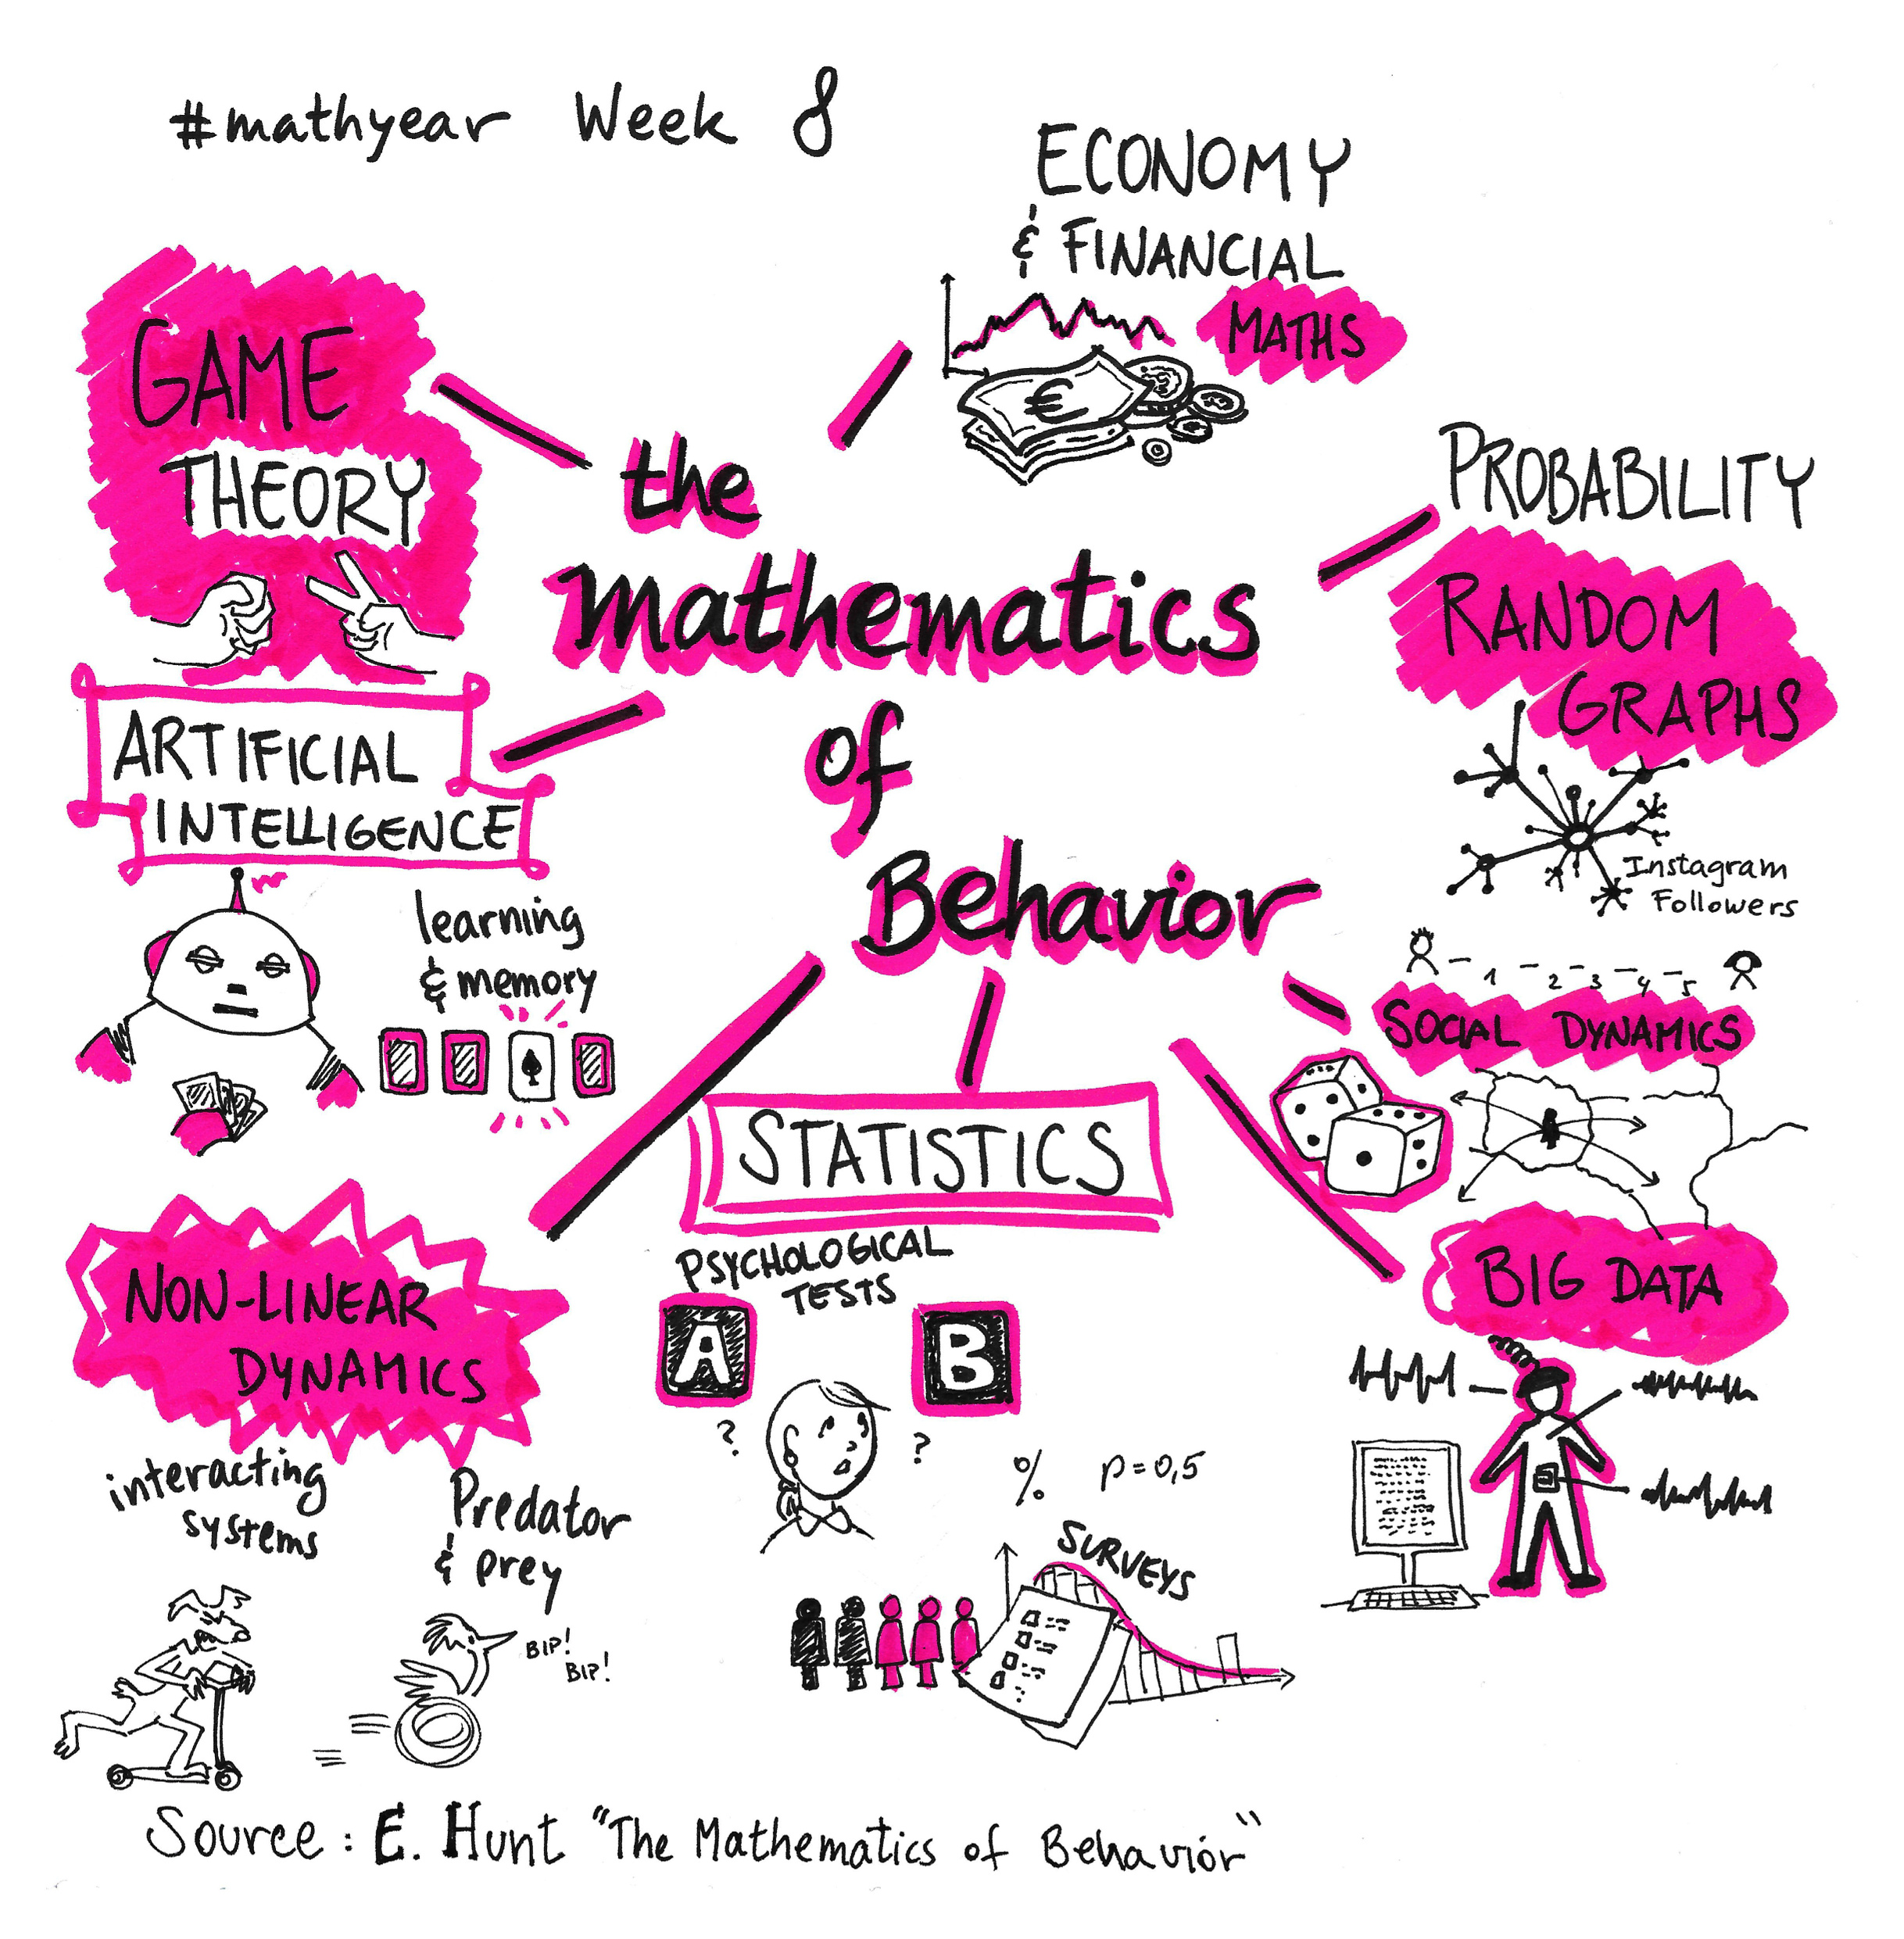 #mathyear Week 8
ECONOMY
& FINANCIAL
MATHS
€
GAME
THEORY
the
Mathematics
of
Behavior
PROBABILITY
RANDOM
GRAPHS
Instagram
Followers
ARTIFICIAL
INTELLIGENCE
learning
& memory
1 2 3 4 5
SOCIAL DYNAMICS
STATISTICS
PSYCHOLOGICAL
TESTS
A B
? ?
% p=0,5
SURVEYS
BIG DATA
NON-LINEAR
DYNAMICS
interacting
systems
Predator
& prey
BIP!
BIP!
Source: E. Hunt "The Mathematics of Behavior"